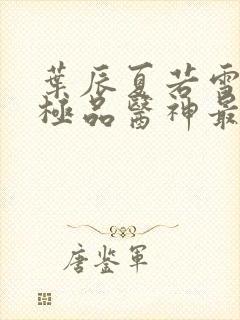 葉辰夏若雪
極品醫神最
唐鉴军